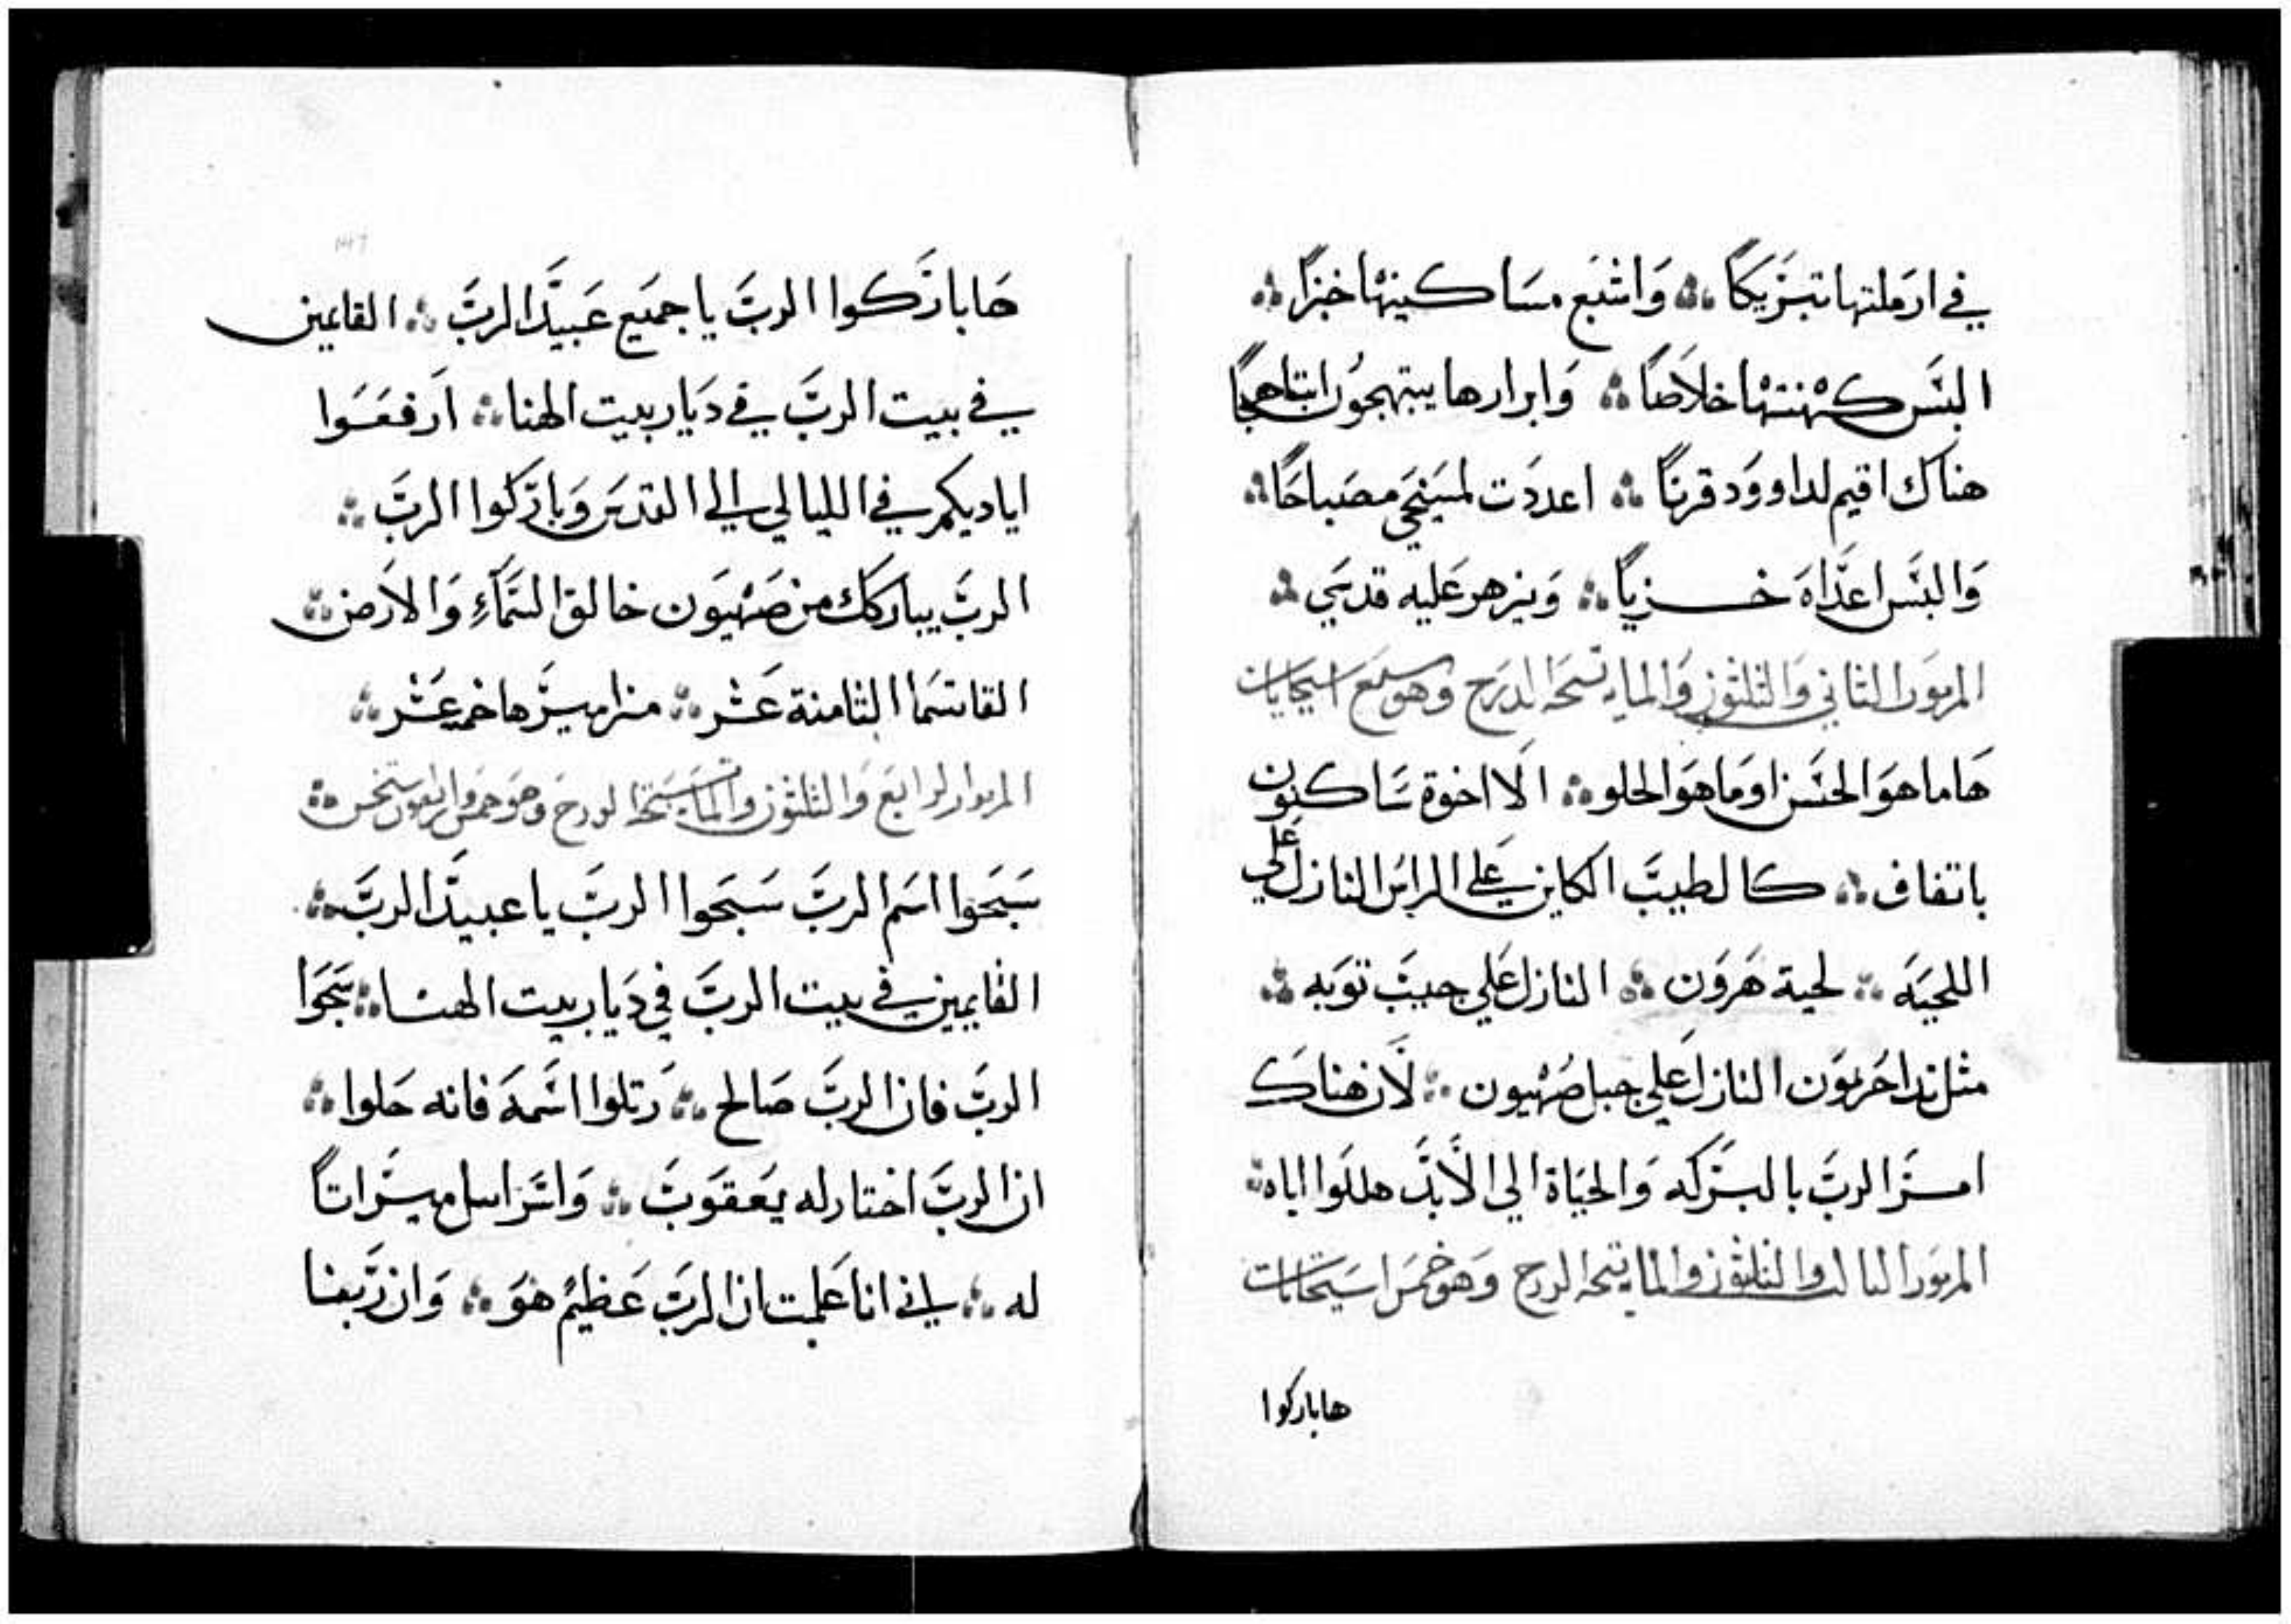 في ارملتها تبريكًا ∴ وَاشبَع مسَاكينها خبزًا ∴
البَس كهنتها خلاصًا ∴ وَابرارها يبتهجوُن ابتاهجًا
هناك اقيم لداووَد قرنًا ∴ اعددَت لمسَيحَي مصَباحًا ∴
وَالبَس اعدَاهَ خزيًا ∴ وَيزهر عَليه قدسَي ∴
المزموَر الثاني وَالثلثون وَالمايه تسَبحَة الدرَج وَهو سَبع استيخابات
هَاما هوَ الحسَن اوَما هوَ الحلو ∴ الَا اخوة سَاكنون
باتفاق ∴ كالطيبَ الكاين عَلي الراسَ النازل عَلي
اللحيَه ∴ لحية هَروَن ∴ النازل عَلي جيبَ ثوَبه ∴
مثل ندا حَرموَن النازل عَلي جبل صَهيون ∴ لَان هناك
امر الربَ بالبركه وَالحيَاة الي الَابدَ هللَوا اياه ∴
المزموَر الثالث وَالثلثون وَالمايه تسبحة الدرج وَهو خمسَ استيخابات
هاباركوا
147
هَابارَكوا الربَ يا جميَع عَبيدَ الربَ ∴ القايمين
في بيت الربَ في ديَار بيت الهنا ∴ ارَفعَوا
اياديكم في الليالي الي القدسَ وَبارَكوا الربَ ∴
الربَ يباركَك من صَهيَون خالق السَمَآءِ وَالارَض ∴
القاتسَما الثامنة عَشر ∴ مزاميرَها خمسَ عَشر ∴
سَبحَوا اسَم الربَ سَبحَوا الربَ يا عبيدَ الربَ ∴
القايمين في بيت الربَ في ديَار بيت الهنا ∴ سَبحَوا
الربَ فان الربَ صَالح ∴ رَتلوا اسَمهَ فانه حَلوا ∴
ان الربَ اختار له يَعقوَبَ ∴ وَاسَراسل ميرَاثاً
له ∴ لاني انا عَلمت ان الربَ عَظيم هوَ ∴ وَان ربَنا